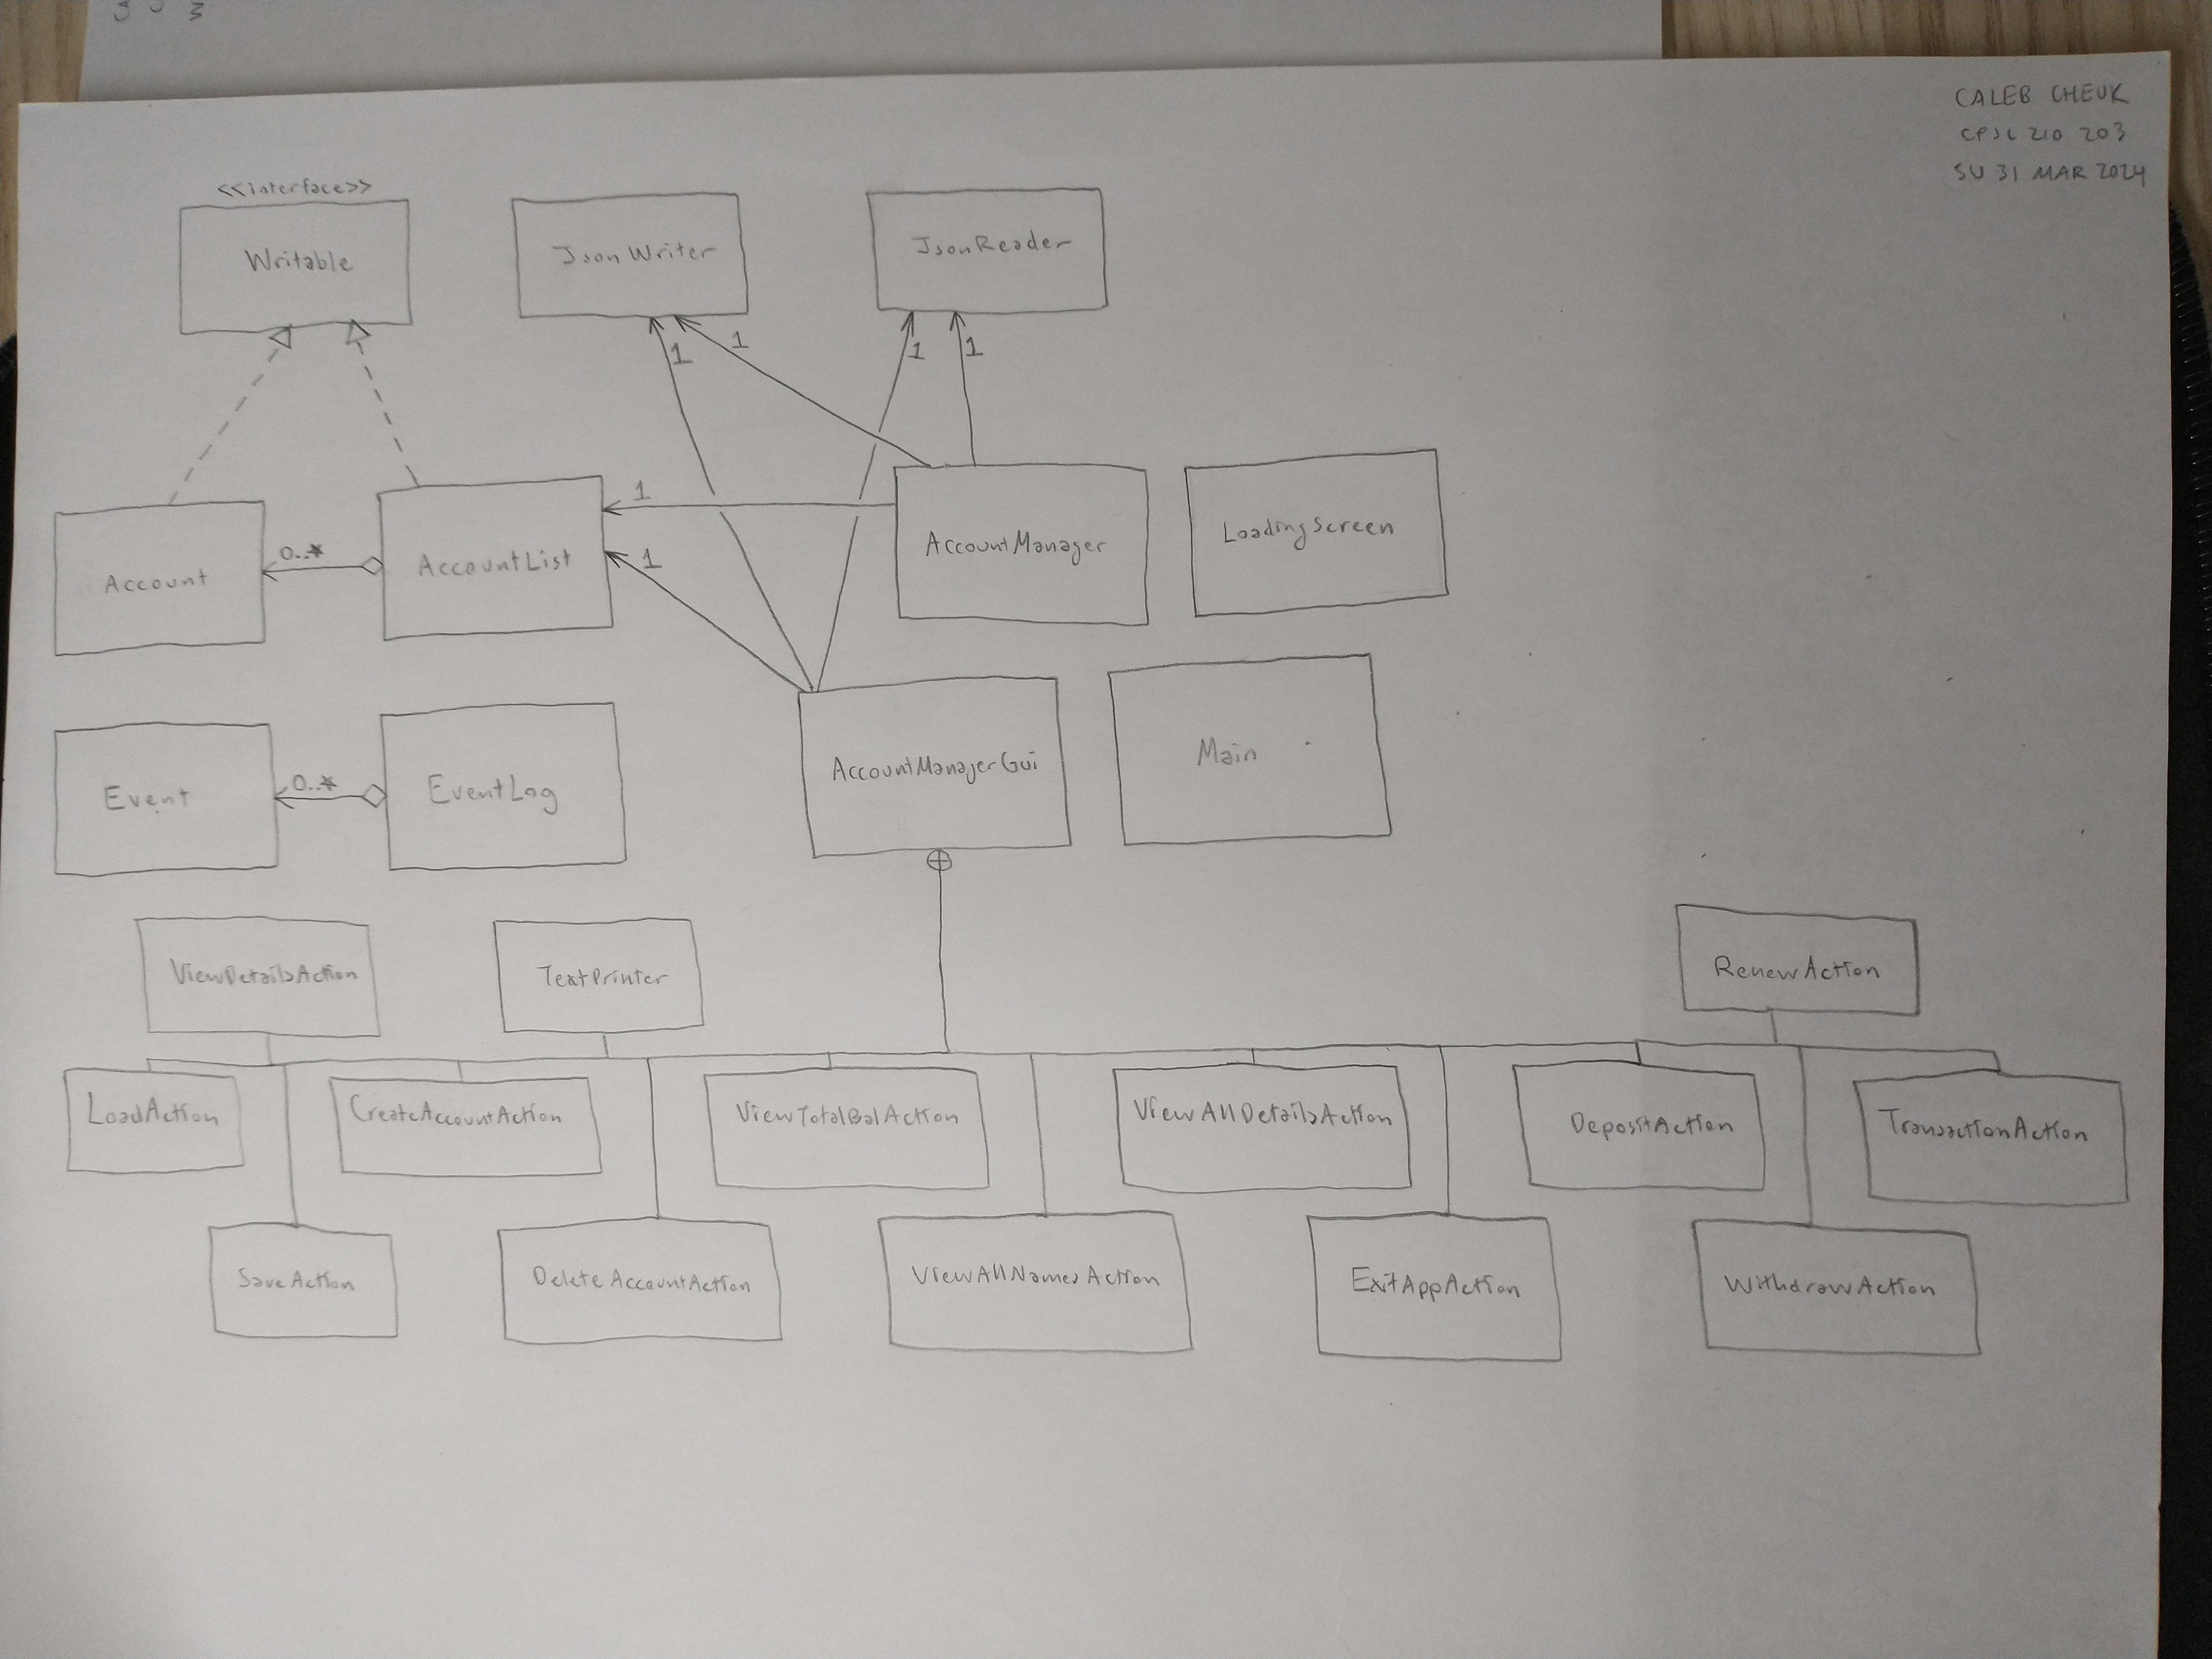 CALEB CHEUK
CPSC 210 203
SU 31 MAR 2024
<<interface>>
Writable
JsonWriter
JsonReader
1
1
1
1
Account
0..*
AccountList
1
1
AccountManager
LoadingScreen
Event
0..*
EventLog
AccountManagerGui
Main
ViewDetailsAction
TextPrinter
RenewAction
LoadAction
CreateAccountAction
ViewTotalBalAction
ViewAllDetailsAction
DepositAction
TransactionAction
SaveAction
DeleteAccountAction
ViewAllNamesAction
ExitAppAction
WithdrawAction